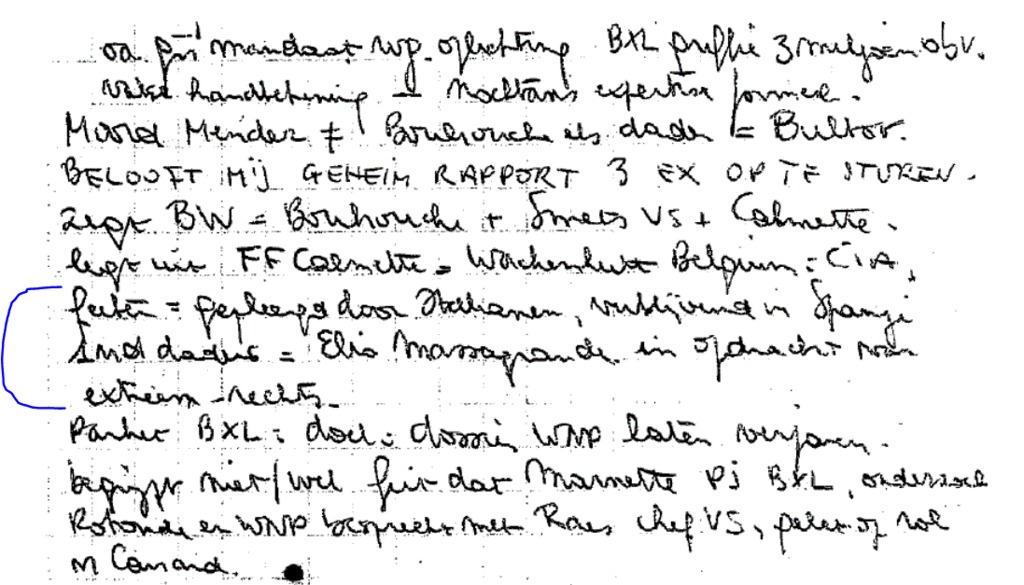 oa mandaat wg. oplichting BXL 3 miljoen obv.
valse handtekening nochtans expertise formeel.
Moord Mendez ≠ Bouhouche als dader = Bultot.
BELOOFT MIJ GEHEIM RAPPORT 3 EX OP TE STUREN.
zegt BW = Bouhouche + Smets VS + Calmette.
legt uit FF Calmette = Wackenhut Belgium = CIA,
feiten = gepleegd door Italianen, verblijvend in Spanje
daders = Elio Massagrande in opdracht van
extreem-rechts.
Parket BXL = doel = dossier WNP laten verjaren.
begrijpt niet/wel feit dat Marnette PJ BXL, onderzoek
Rotonde en WNP bespreekt met Raes chef VS,
in Canard.